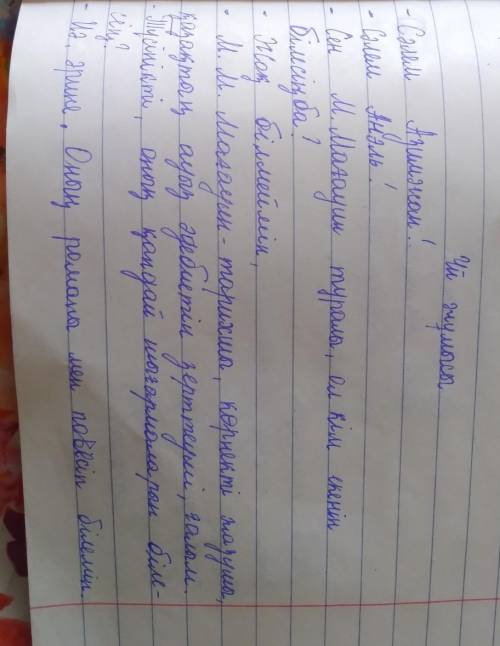 Үй жұмысы.
- Сәлем Азишәнем!
- Сәлем Анэль!
- Сен М. Мағауин туралы, ол кім екенін
білмісіңба?
- Жоқ білмеймін,
- М. М. Мағауин - тарихшы, көрнекті жазушы,
қазақтың ауыз әдебиетін зерттеуші, ғалым.
- Түсінікті, оның қандай шығармаларын біле-
сің?
- Иә, әрине, Оның романы мен повесін білемін.